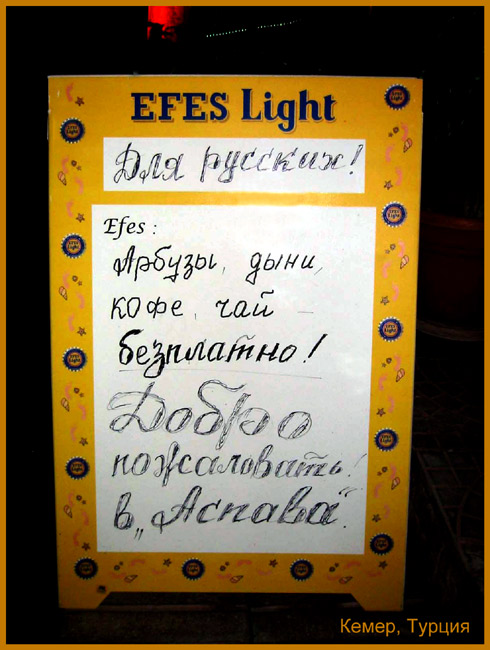 EFES Light
Для русских!
Efes :
Арбузы, дыни,
кофе, чай
безплатно!
Добро
пожаловать!
в „Аспава“.
Кемер, Турция